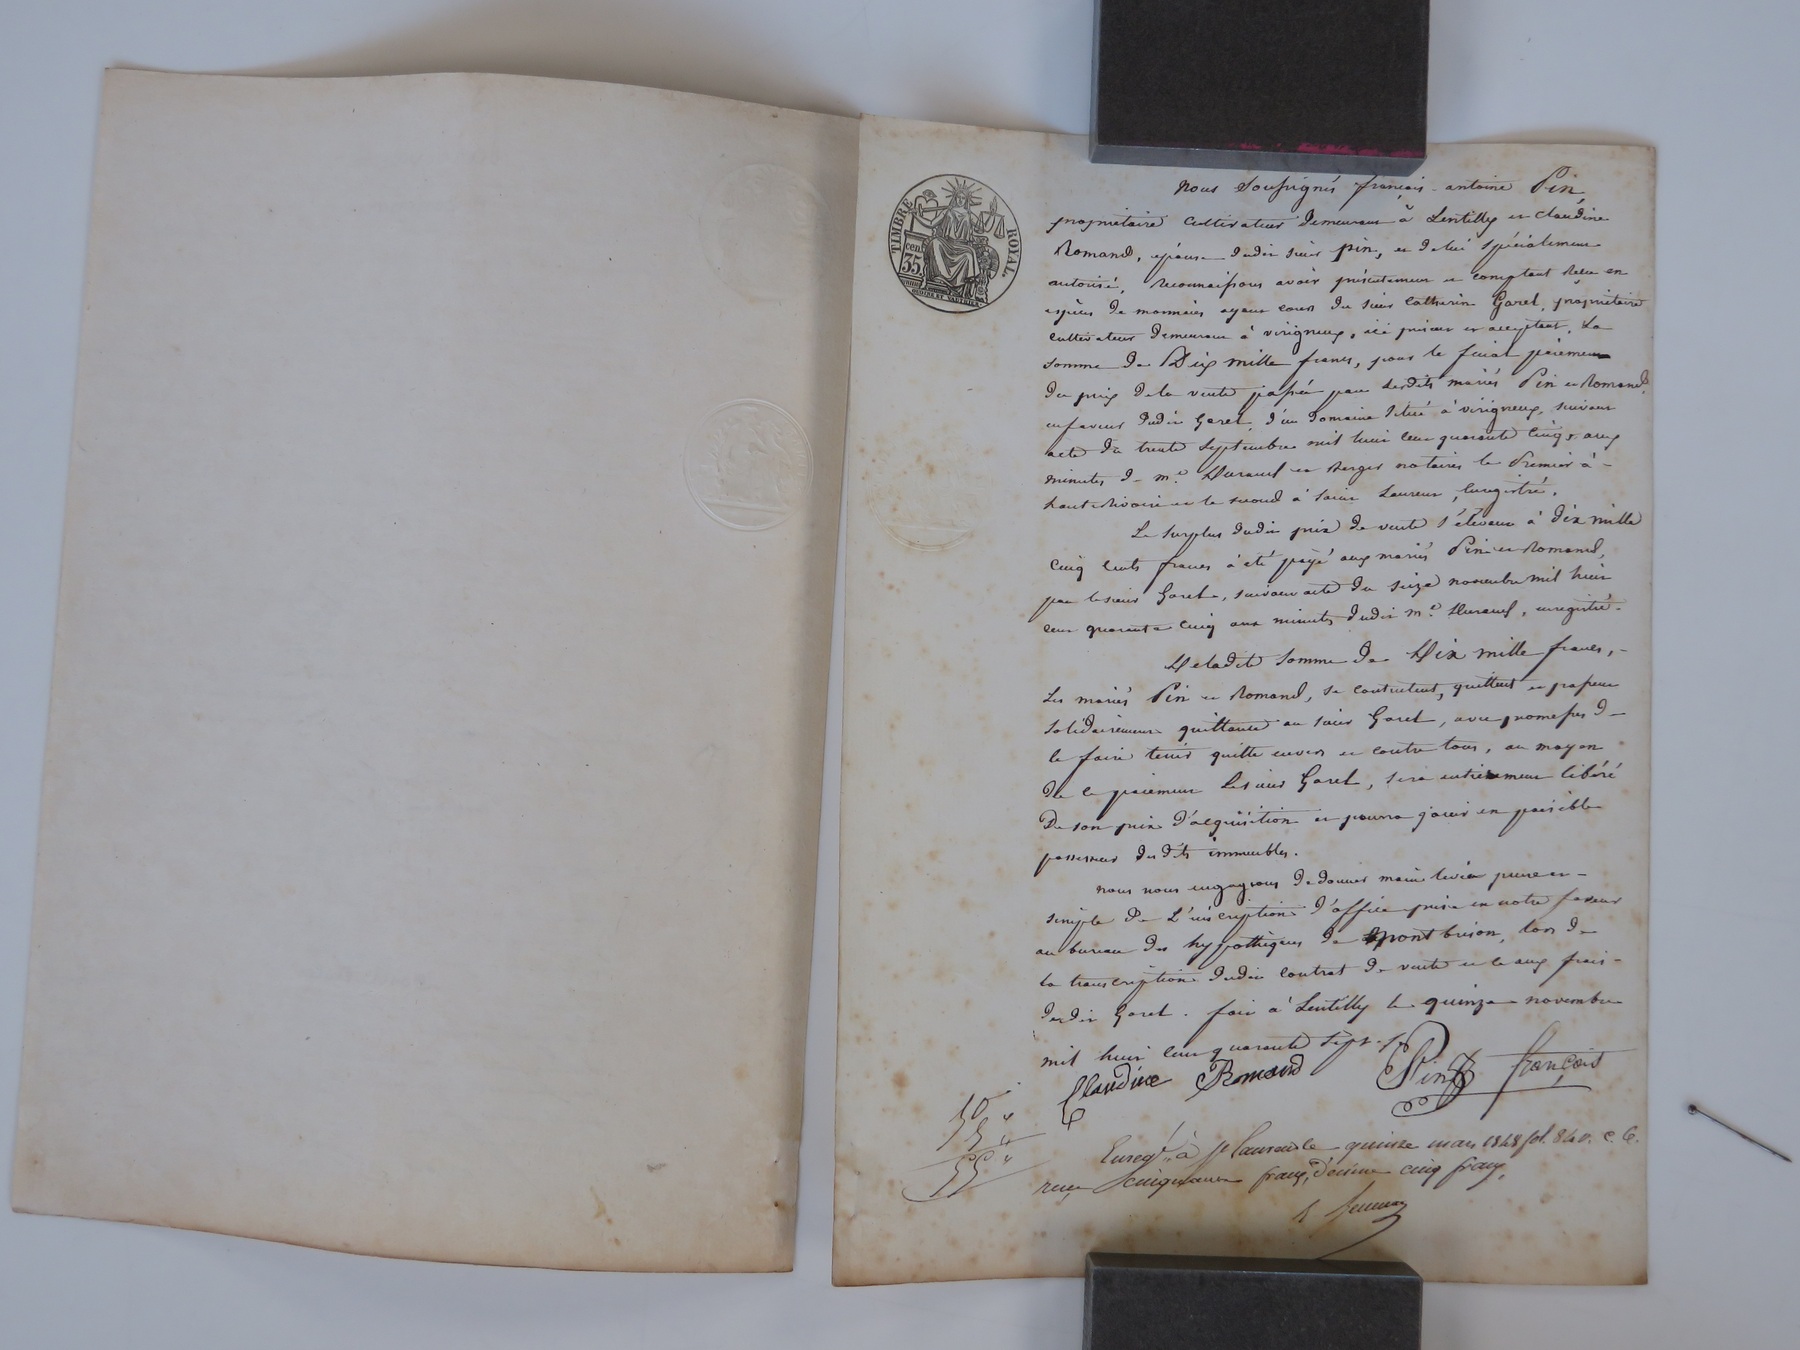 TIMBRE ROYAL.
cen. 35.
nous Soussignés françois-antoine Pin,
propriétaire Cultivateur Demeurant à Lentilly et Claudine
Romand, épouse dudit sieur Pin, et de lui spécialement
autorisé, Reconnaissons avoir présentement et comptant Reçu en
espèces de monnaies ayant cours du sieur Catherin Garel, propriétaire
cultivateur demeurant à virigneux, ici présent et acceptant, La
somme de Dix mille francs, pour le final paiement
du prix de la vente passée par Lesdits mariés Pin et Romand,
en faveur dudit Garel, d'un domaine situé à virigneux, suivant
acte du trente septembre mil huit cent quarante cinq, aux
minutes de me et Berger notaires le Premier à-
haute Rivoire et le second à saint Laurent, Enregistré.
Le surplus dudit prix de vente s'élevant à dix mille
cinq cents francs à été payé aux mariés Pin et Romand,
par le sieur Garel, suivant acte du seize novembre mil huit
cent quarante cinq aux minutes dudit me, enregistré.
De ladite somme de Dix mille francs,-
Les mariés Pin et Romand, se contentent, quittent et passent
solidairement quittance au sieur Garel, avec promesses de
le faire tenir quitte envers et contre tous, au moyen
de ce paiement Le sieur Garel, sera entièrement libéré
De son prix d'acquisition et pourra jouir en paisible
possesseur desdits immeubles.
nous nous engageons de donner main levée pure et-
simple De L'inscription d'office prise en notre faveur
au bureau des hypothèques de montbrison, lors de
la transcription dudit contrat de vente et ce aux frais-
dudit Garel. fait à Lentilly le quinze novembre
mil huit cent quarante sept.
Claudine Romand Pin françois
50 "
5 "
55 "
Enregé à St Laurent le quinze mars 1848 fol. 84 v. c. 6.
reçu cinquante francs, décime cinq francs.